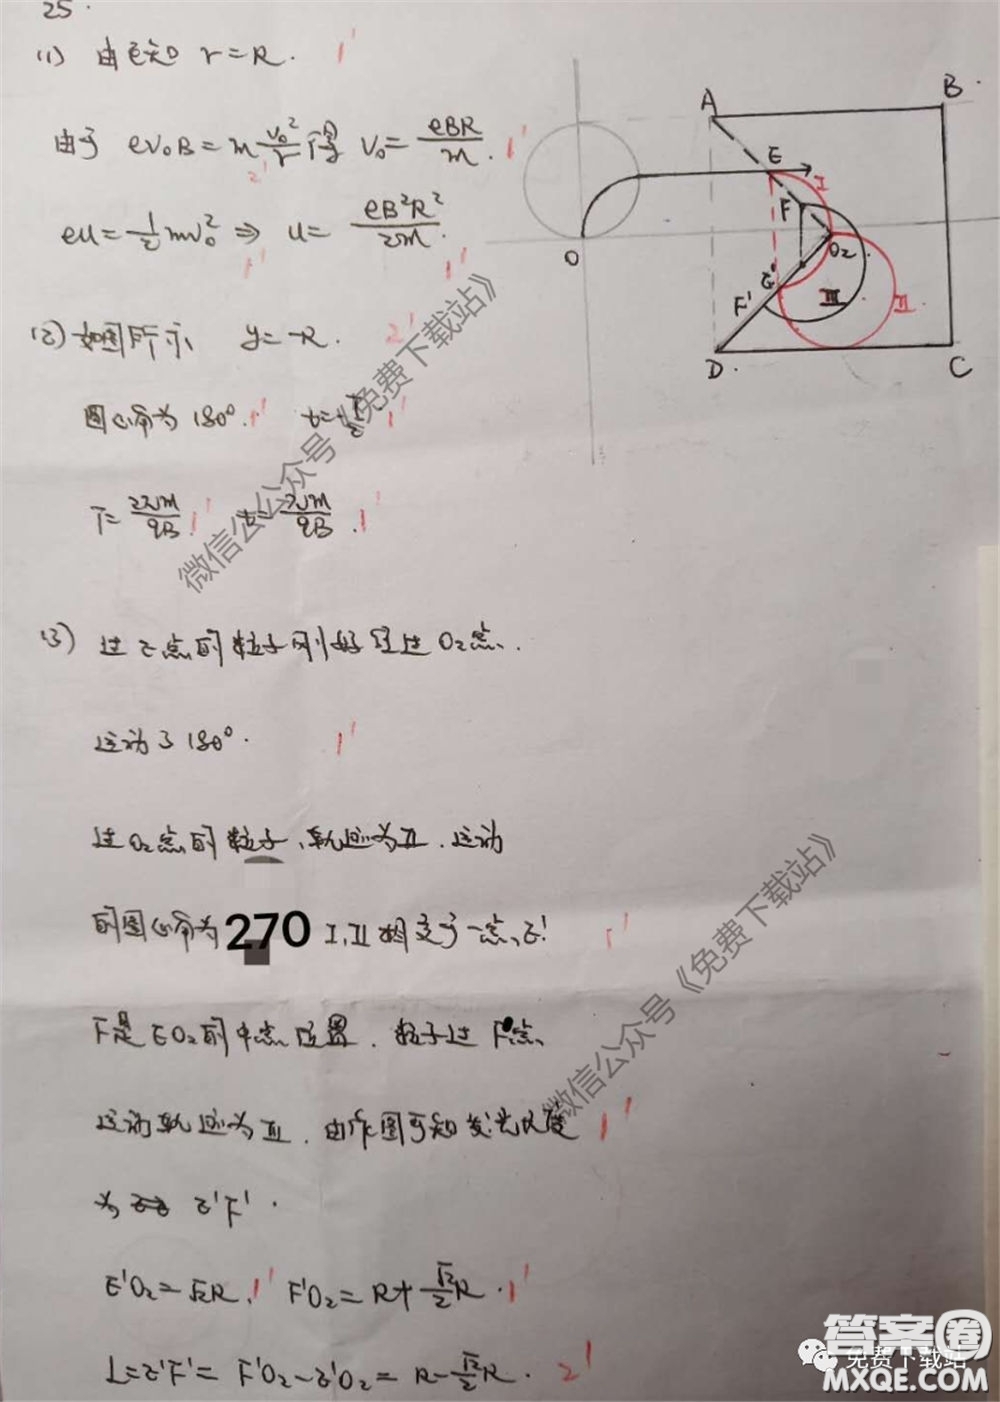 25.
(1) 由已知 r=R. 1'
由于 ev₀B=m v₀²/r 得 v₀= eBR/m. 1'
2'
eu=½mv₀² ⇒ u= eB²R²/2m.
1' 1'
(2) 如图所示 y=-R. 2'
圆心角为 180°. 1' 1'
T= 2πm/qB 1' 1'
(3) 过E点的粒子刚好经过O₂点.
运动了180°. 1'
过O₂点的粒子,轨迹为Ⅱ.运动
的圆心角为270 Ⅰ,Ⅱ相交于一点,E'. 1'
F是EO₂的中点位置.粒子过F点
运动轨迹为Ⅲ.由作图可知发光长度 1'
为 E'F'.
E'O₂=√2R. 1' F'O₂=R+√2/2R. 1'
L=E'F'= F'O₂-E'O₂= R-√2/2R. 2'
A
B
E
Ⅰ
F
O
O₂
E'
F'
Ⅲ
Ⅱ
D.
C
微信公众号《免费下载站》
微信公众号《免费下载站》
免费下载站
答案圈
MXQE.COM